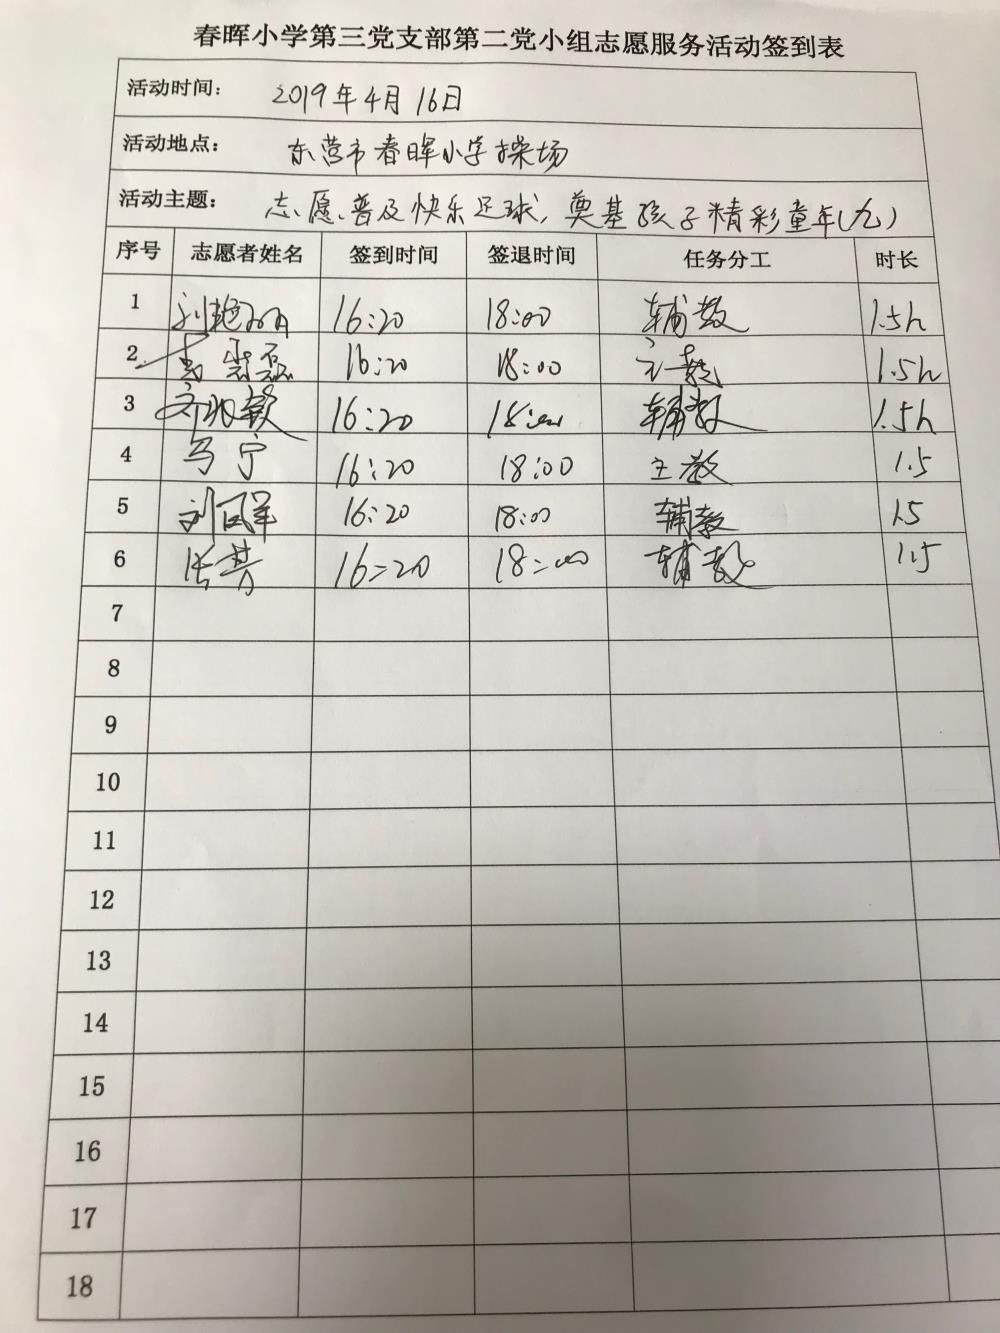 春晖小学第三党支部第二党小组志愿服务活动签到表
活动时间： 2019年4月16日
活动地点： 东营市春晖小学操场
活动主题： 志愿、普及快乐足球，奠基孩子精彩童年(九)
序号 志愿者姓名 签到时间 签退时间 任务分工 时长
1 刘艳 16:20 18:00 辅教 1.5h
2 16:20 18:00 主教 1.5h
3 16:20 18:00 辅教 1.5h
4 马宁 16:20 18:00 主教 1.5
5 刘凤军 16:20 18:00 辅教 1.5
6 张芳 16:20 18:00 辅教 1.5
7
8
9
10
11
12
13
14
15
16
17
18